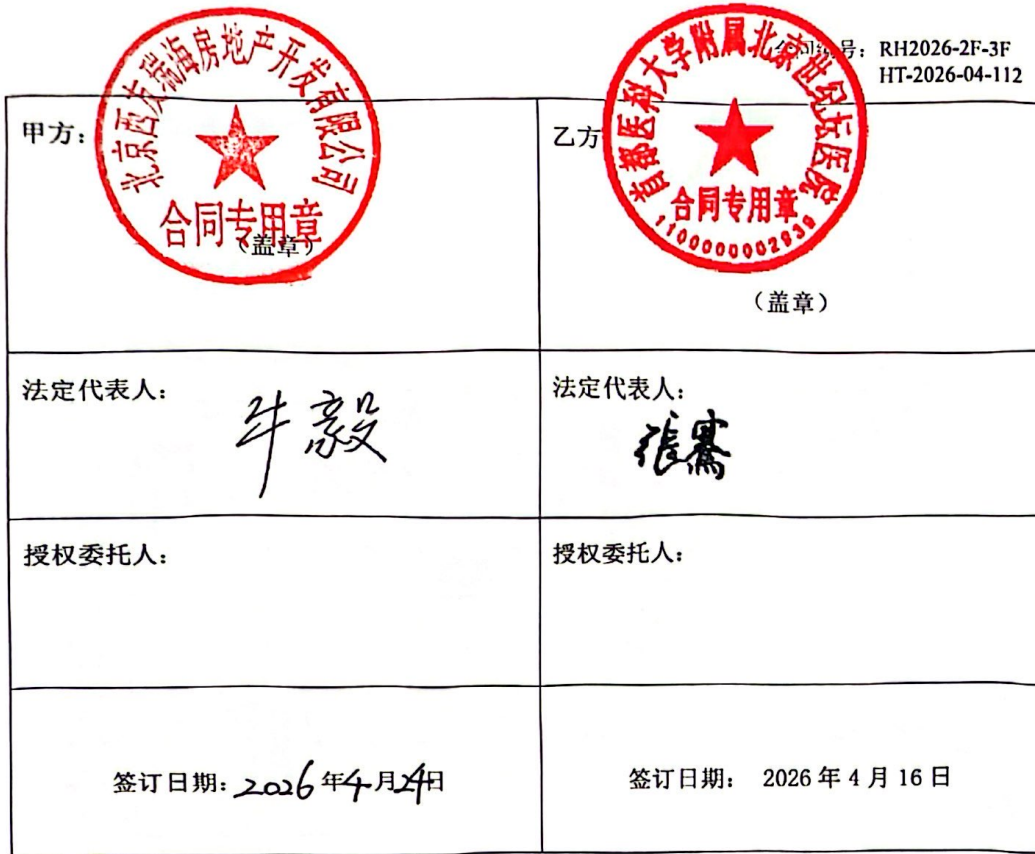 合同编号：RH2026-2F-3F
HT-2026-04-112
甲方：
北京西友瑞海房地产开发有限公司
合同专用章
（盖章）
乙方
首都医科大学附属北京世纪坛医院
合同专用章
1100000002939
（盖章）
法定代表人：
牛毅
法定代表人：
张骞
授权委托人：
授权委托人：
签订日期：2026年4月24日
签订日期： 2026 年 4 月 16 日